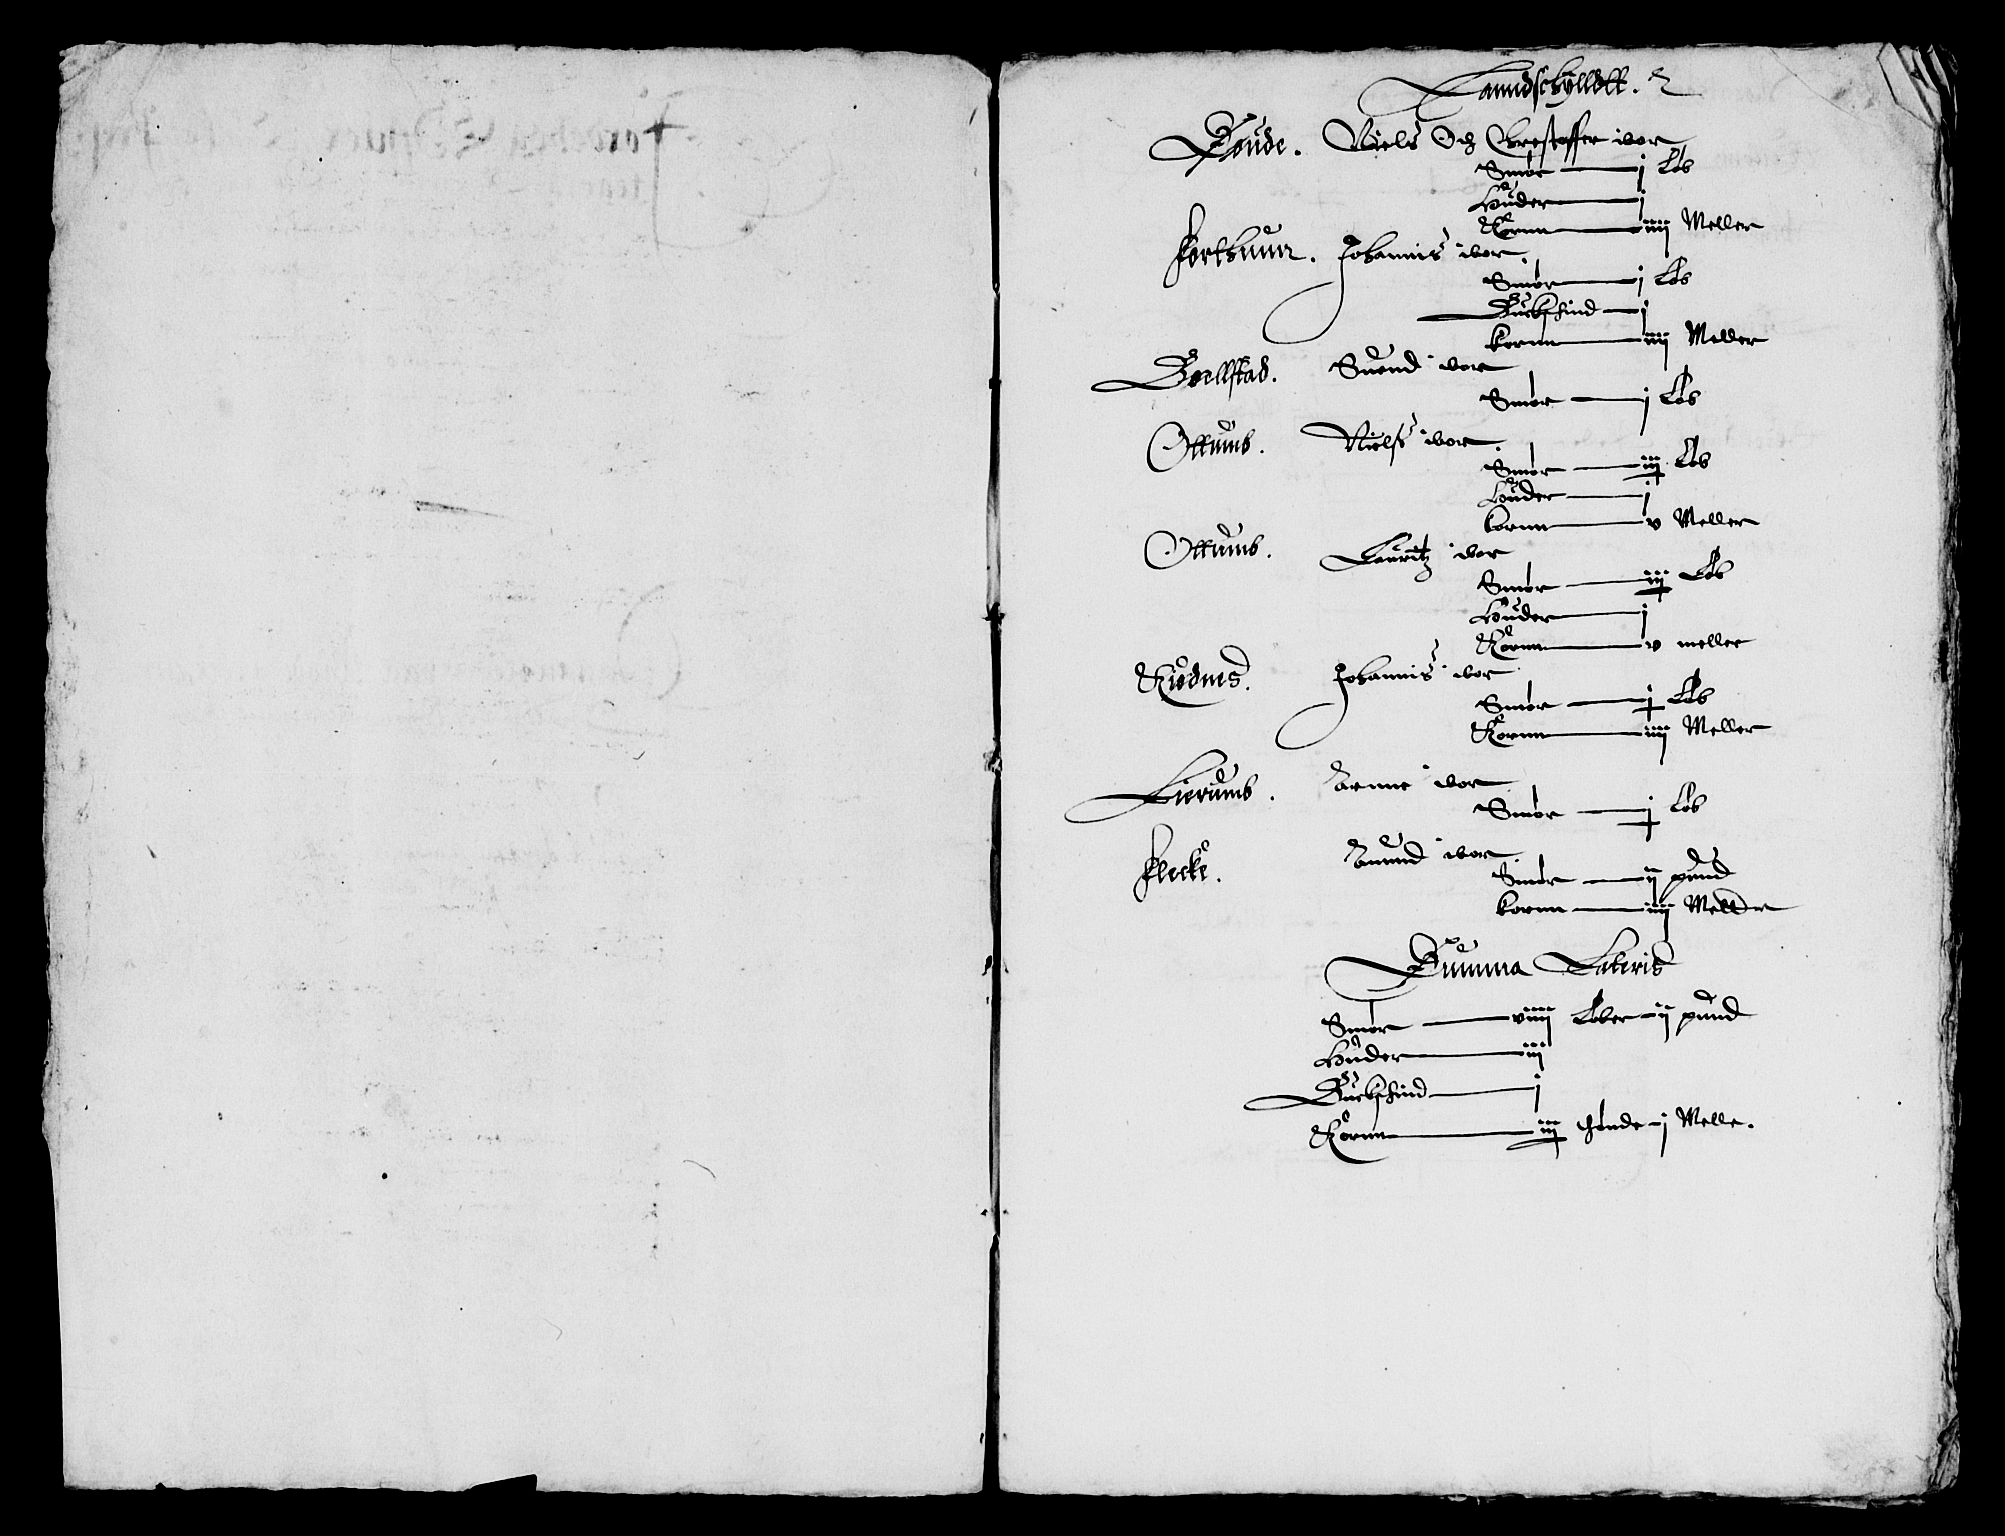 Lanndschÿlldt.
Boude. Niels Och Chrestoffer ibor
Smør — j Løb
Huder — j
Kornn — iiij Meller
Korthuun. Johannis ibor
Smør — j Løb
Buckschind — j
kornn — iiij Meller
Boellstad. Suend ibor
Smør — j Løb
Ottumb. Nielss ibor
Smør — iij Løb
Huder — j
kornn — v Meller
Ottumb. Lauritz ibor
Smør — iij Løb
Huder — j
Kornn — v meller
Kiødnes. Johannis ibor
Smør — j Løb
Kornn — iiij Meller
Lierumb. Aarnne ibor
Smør — j Løb
Klecke. Aamund ibor
Smør — ij pund
kornn — iiij Meller
Summa Lateris
Smør — viiij Løber — ij pund
Huder — iij
Buckschind — j
Kornn — iij thønde — j Melle.